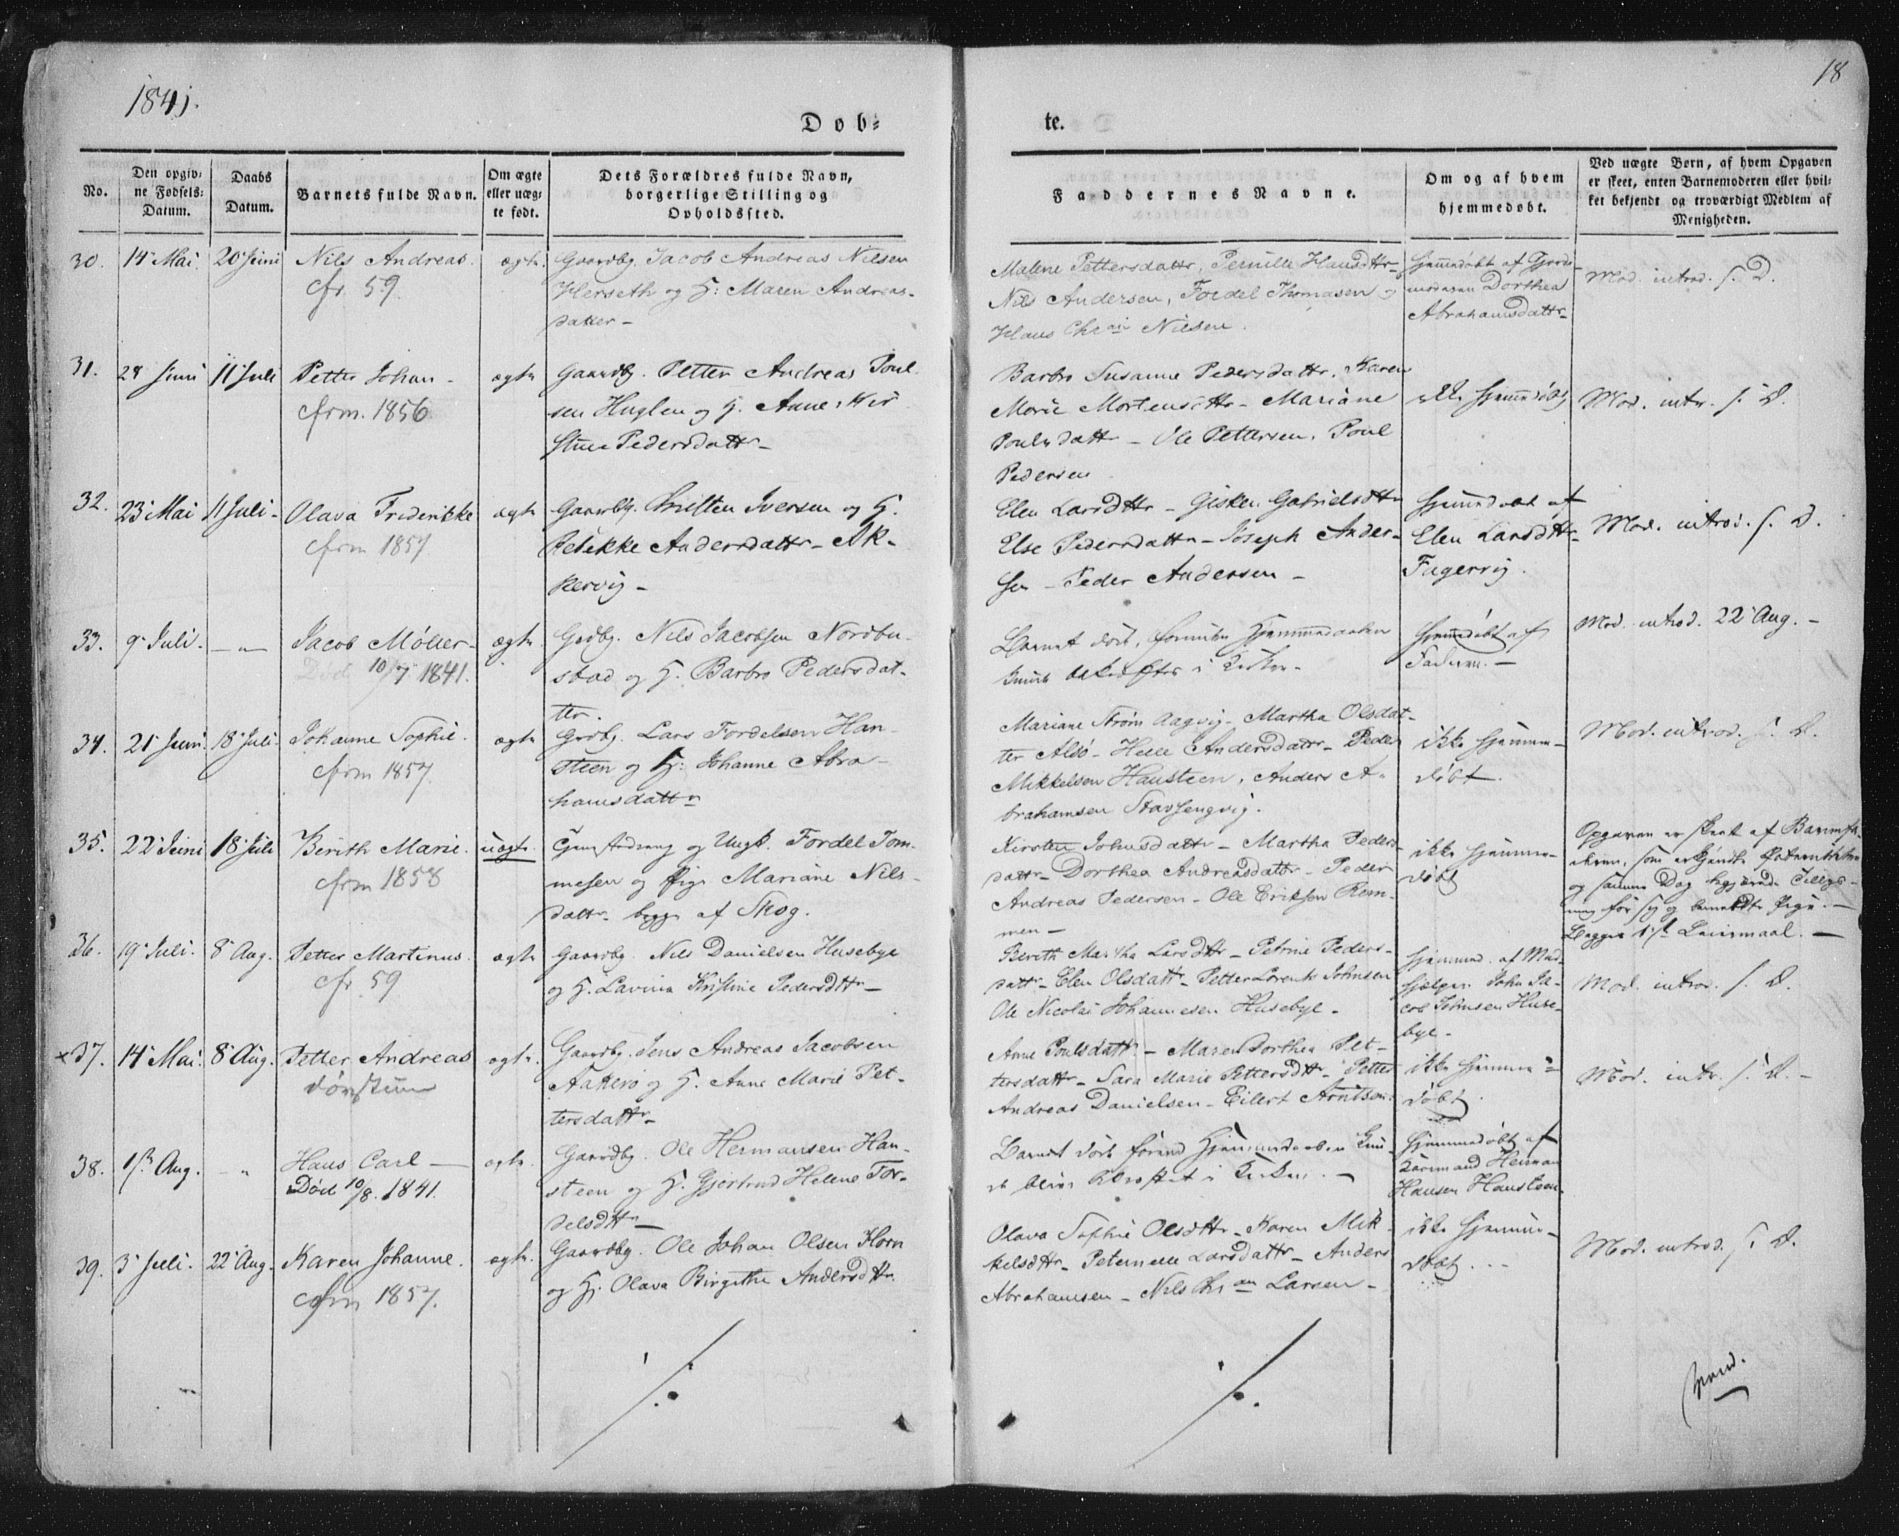 1841.
18
Dob=
te.
No.
Den opgiv=
ne Fødsels=
Datum.
Daabs
Datum.
Barnets fulde Navn.
Om ægte
eller uæg-
te født.
Dets Forældres fulde Navn,
borgerlige Stilling og
Opholdssted.
Faddernes Navne.
Om og af hvem
hjemmedøbt.
Ved uægte Børn, af hvem Opgaven
er skeet, enten Barnemoderen eller hvil=
ket bekjendt og troværdigt Medlem af
Menigheden.
30. 14 Mai. 20 Juni Nils Andreas. ægte
cfr. 59.
Gaardbg. Jacob Andreas Nilsen
Herseth og H: Maren Andreas-
datter -
Malene Pettersdattr, Pernille Hansdttr -
Nils Andersen, Fordel Thomasen og
Hans Chr. Nilsen.
Hjemmedøbt af Gjorde-
moderen Dorthea
Abrahamsdattr -
Mod. introd. s. D.
31. 28 Juni 11 Juli Petter Johan - ægte
cfrm. 1856
Gaardbg. Petter Andreas Poul-
sen Huglen og H. Anne Kir-
stine Pedersdattr -
Barbro Susanne Pedersdattr. Karen
Marie Mortensdttr - Mariane
Poulsdattr - Ole Pettersen, Poul
Pedersen
ikke hjemmedøbt
Mod. intr. s. D.
32. 23 Mai 11 Juli - Olava Friderikke ægte
cfrm 1857
Gaardbg. Christen Iversen og H.
Rebekke Andersdattr - Ak-
kervig -
Elen Larsdttr - Gisken Gabrielsdttr
Else Pedersdattr - Joseph Ander-
sen - Peder Andersen -
Hjemmedøbt af
Elen Larsdttr -
Fagervig.
Mod. introd. s. D.
33. 9 Juli. - " - Jacob Møller - ægte
Død 10/7 1841.
Grdbg. Nils Jacobsen Nordbu-
stad og H. Barbro Pedersdat-
ter.
Barnet døde, forinden Hjemmedaaben
kunde bekræftes i Kirken -
Hjemmedøbt af
Faderen. -
Mod. introd. 22 Aug. -
34. 21 Juni. 18 Juli. Johanne Sophie. ægte
cfrm 1857.
Grdbg. Lars Fordelsen Han-
steen og H: Johanne Abra-
hamsdattr
Mariane Strøm Aagvig - Martha Olsdat-
ter - Andersdattr - Peder
Mikkelsen Hansteen, Anders A-
brahamsen Stavsengvig.
ikke hjemme-
døbt.
Mod. introd. s. D.
35. 22 Juni 18 Juli Berith Marie. uægte.
cfrm 1858
og Ungk. Fordel Tom-
mesen og Pige Mariane Nils-
dattr - begge af Skog.
Kirsten Johnsdattr - Martha Peders-
dattr - Dorthea Andreasdattr - Peder
Andreas Pedersen - Ole Eriksen Rem-
men -
ikke hjemme-
døbt
Opgaven er skeet af Barnefa-
deren, som erkjendte Paterniteten
og samme Dag begjærede Tillys-
ning for sig og bemeldte Pige. -
Begges 1ste Leiermaal. -
36. 19 Juli. 8 Aug. Petter Martinus. ægte
cfr. 59
Gaardbg. Nils Danielsen Husebye
og H. Lavina Kristine Pedersdttr -
Bereth Martha Larsdttr - Petrine Peders-
dattr - Elen Olsdattr - Petter Lorents Johnsen
Ole Nicolai Johannesen Husebye -
hjemmed. af Med-
hjælper John Ja-
cob Johnsen Huse-
bye -
Mod. introd. s. D.
x 37. 14 Mai. 8 Aug. Petter Andreas ægte.
døvstum
Gaardbg. Jens Andreas Jacobsen
Aakerø og H. Anne Marie Pet-
tersdattr -
Anne Poulsdattr - Maren Dorthea Pet-
tersdattr - Sara Marie Pettersdttr - Petter
Andreas Danielsen - Eilert Arntsen.
ikke hjemme-
døbt.
Mod. intr. s. D. -
38. 1ste Aug. " Hans Carl - ægte.
Død 10/8. 1841.
Gaardbg. Ole Hermansen Han-
steen og H. Gjertrud Helene For-
delsdttr -
Barnet døde førend Hjemmedaaben kun-
de blive bekræftet i Kirken. -
Hjemmedøbt af
Kaarmand Herman
Hansen Hansteen.
39. 3 Juli. 22 Aug. Karen Johanne. ægte.
cfrm 1857.
Gaardbg. Ole Johan Olsen Horn
og H. Olava Birgithe Andersdttr.
Olava Sophie Olsdttr - Karen Mik-
kelsdttr - Peternelle Larsdattr - Anders
Abrahamsen - Nils Chr. Larsen -
ikke hjemme-
døbt. - -
Mod. introd. s. D.